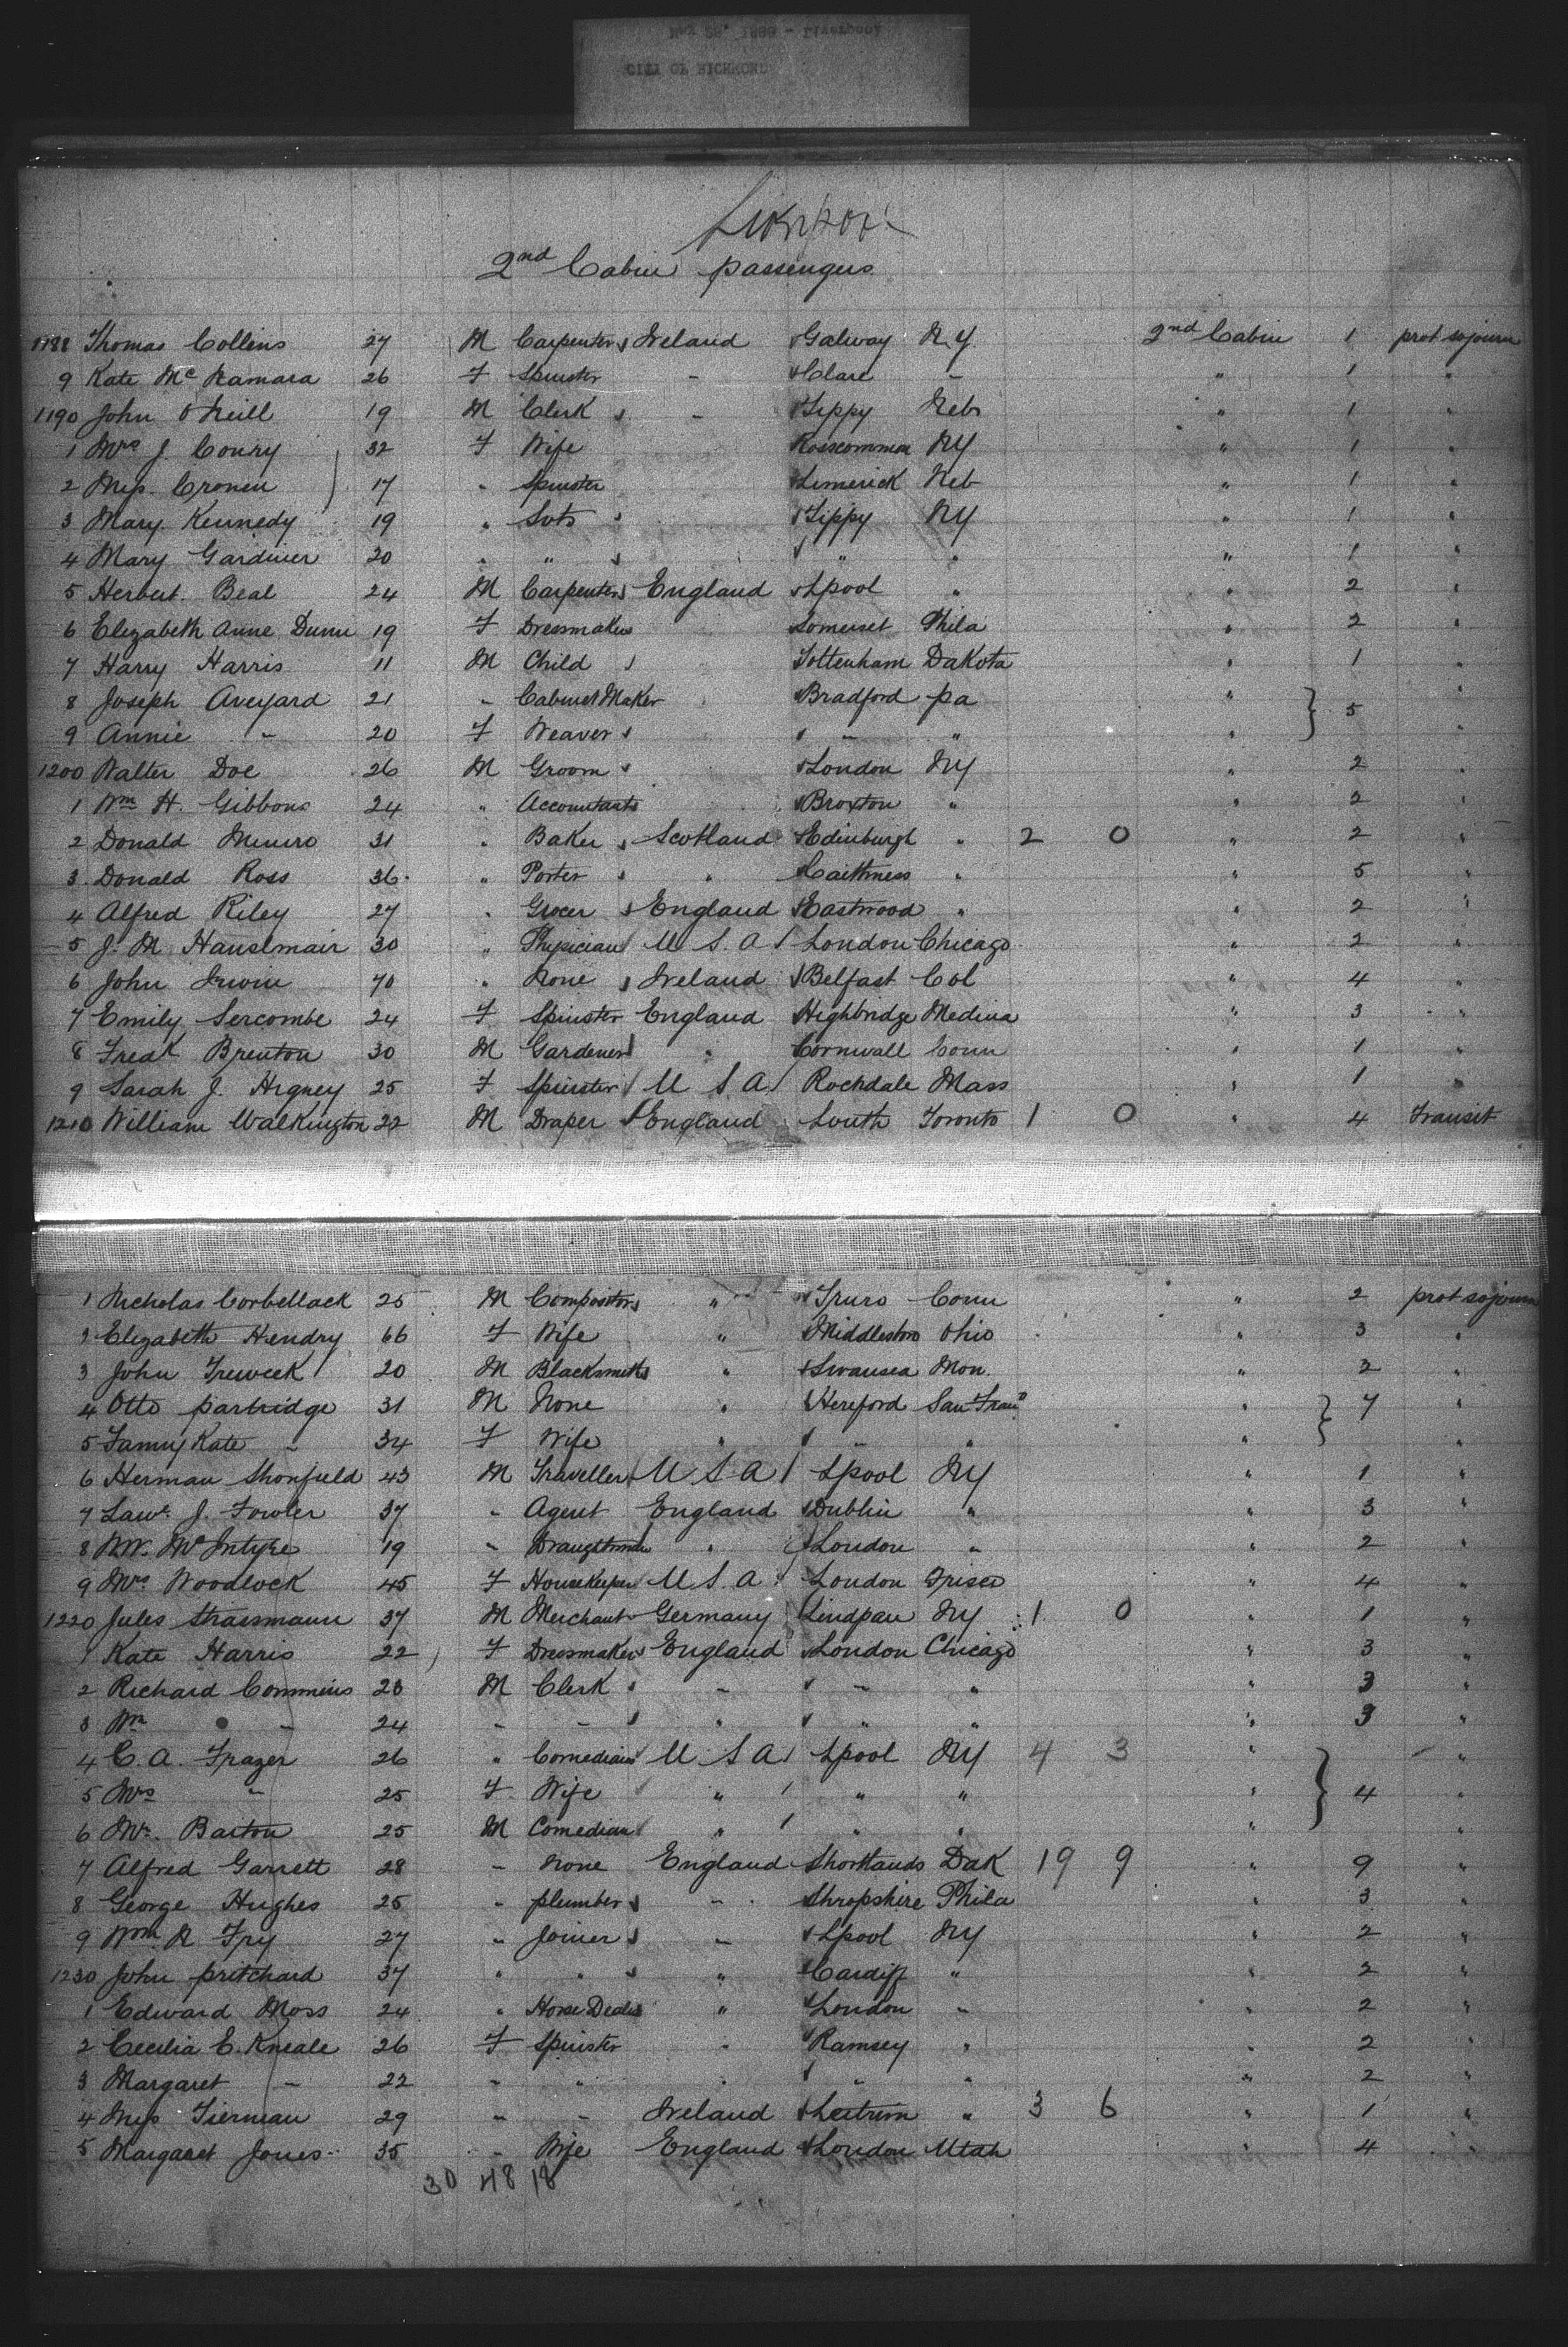 May 28, 1888 - Liverpool
CITY OF RICHMOND
Liverpool
2nd Cabin passengers
1188 Thomas Collins 27 M Carpenter Ireland Galway N.Y. 2nd Cabin 1 prot sojourn
9 Kate Mc Namara 26 F Spinster - Clare - " 1 "
1190 John O Neill 19 M Clerk - Tippy Nebr " 1 "
1 Mrs J. Conry 32 F Wife Roscommon NY " 1 "
2 Miss Cronin 17 " Spinster Limerick Neb " 1 "
3 Mary Kennedy 19 " Svts Tippy NY " 1 "
4 Mary Gardiner 20 " " " " " 1 "
5 Herbert Beal 24 M Carpenter England Lpool " " 2 "
6 Elizabeth Anne Dunn 19 F Dressmaker Somerset Phila " 2 "
7 Harry Harris 11 M Child Tottenham Dakota " 1 "
8 Joseph Aveyard 21 - Cabinet Maker Bradford pa " 5 "
9 Annie - 20 F Weaver - " " "
1200 Walter Doe 26 M Groom London NY " 2 "
1 Wm H. Gibbons 24 " Accountant Broxton " " 2 "
2 Donald Munro 31 " Baker Scotland Edinburgh " 2 0 " 2 "
3 Donald Ross 36 " Porter " Caithness " " 5 "
4 Alfred Riley 27 " Grocer England Eastwood " " 2 "
5 J. M Hanselmair 30 " Physician U S. A London Chicago " 2 "
6 John Irwin 70 " None Ireland Belfast Col " 4 "
7 Emily Sercombe 24 F Spinster England Highbridge Medina " 3 "
8 Fredk Brenton 30 M Gardener " Cornwall Conn " 1 "
9 Sarah J. Higney 25 F Spinster U S A Rochdale Mass " 1 "
1210 William Walkington 22 M Draper England Louth Toronto 1 0 " 4 Transit
1 Nicholas Corbellack 25 M Compositor " Truro Conn " 2 prot sojourn
2 Elizabeth Hendry 66 F Wife " Middlesbro Ohio " 3 "
3 John Treweek 20 M Blacksmith " Swansea Mon. " 2 "
4 Otto partridge 31 M None " Hereford San Fran " 7 "
5 Fanny Kate - 34 F Wife " - " " "
6 Herman Shonfield 43 M Traveller U S A Lpool NY " 1 "
7 Lawr. J. Fowler 37 - Agent England Dublin " " 3 "
8 Mc Intyre 19 - Draughtsman " London " " 2 "
9 Mrs Woodlock 45 F Housekeeper U. S. A London Frisco " 4 "
1220 Jules Strassmann 37 M Merchant Germany NY 1 0 " 1 "
1 Kate Harris 22 F Dressmaker England London Chicago " 3 "
2 Richard Commins 23 M Clerk - - " " 3 "
3 Wm - 24 - - " " " " 3 "
4 C. A. Frazer 26 " Comedian U S A Lpool NY 4 3 " "
5 Mrs - 25 F Wife " " " " 4 "
6 Mr. Barton 25 M Comedian " " " " "
7 Alfred Garrett 28 - None England Shortlands Dak 19 9 " 9 "
8 George Hughes 25 - plumber - Shropshire Phila " 3 "
9 Wm R Fry 27 " Joiner - Lpool NY " 2 "
1230 John pritchard 37 " " " Cardiff " " 2 "
1 Edward Moss 24 " Horse Dealer " London - " 2 "
2 Cecilia E. Kneale 26 F Spinster - Ramsey " " 2 "
3 Margaret - 22 - " " " " " 2 "
4 Miss Tiernan 29 - - Ireland Leitrim " 3 6 " 1 "
5 Margaret Jones 35 - Wife England London Utah " 4 "
30 48 18